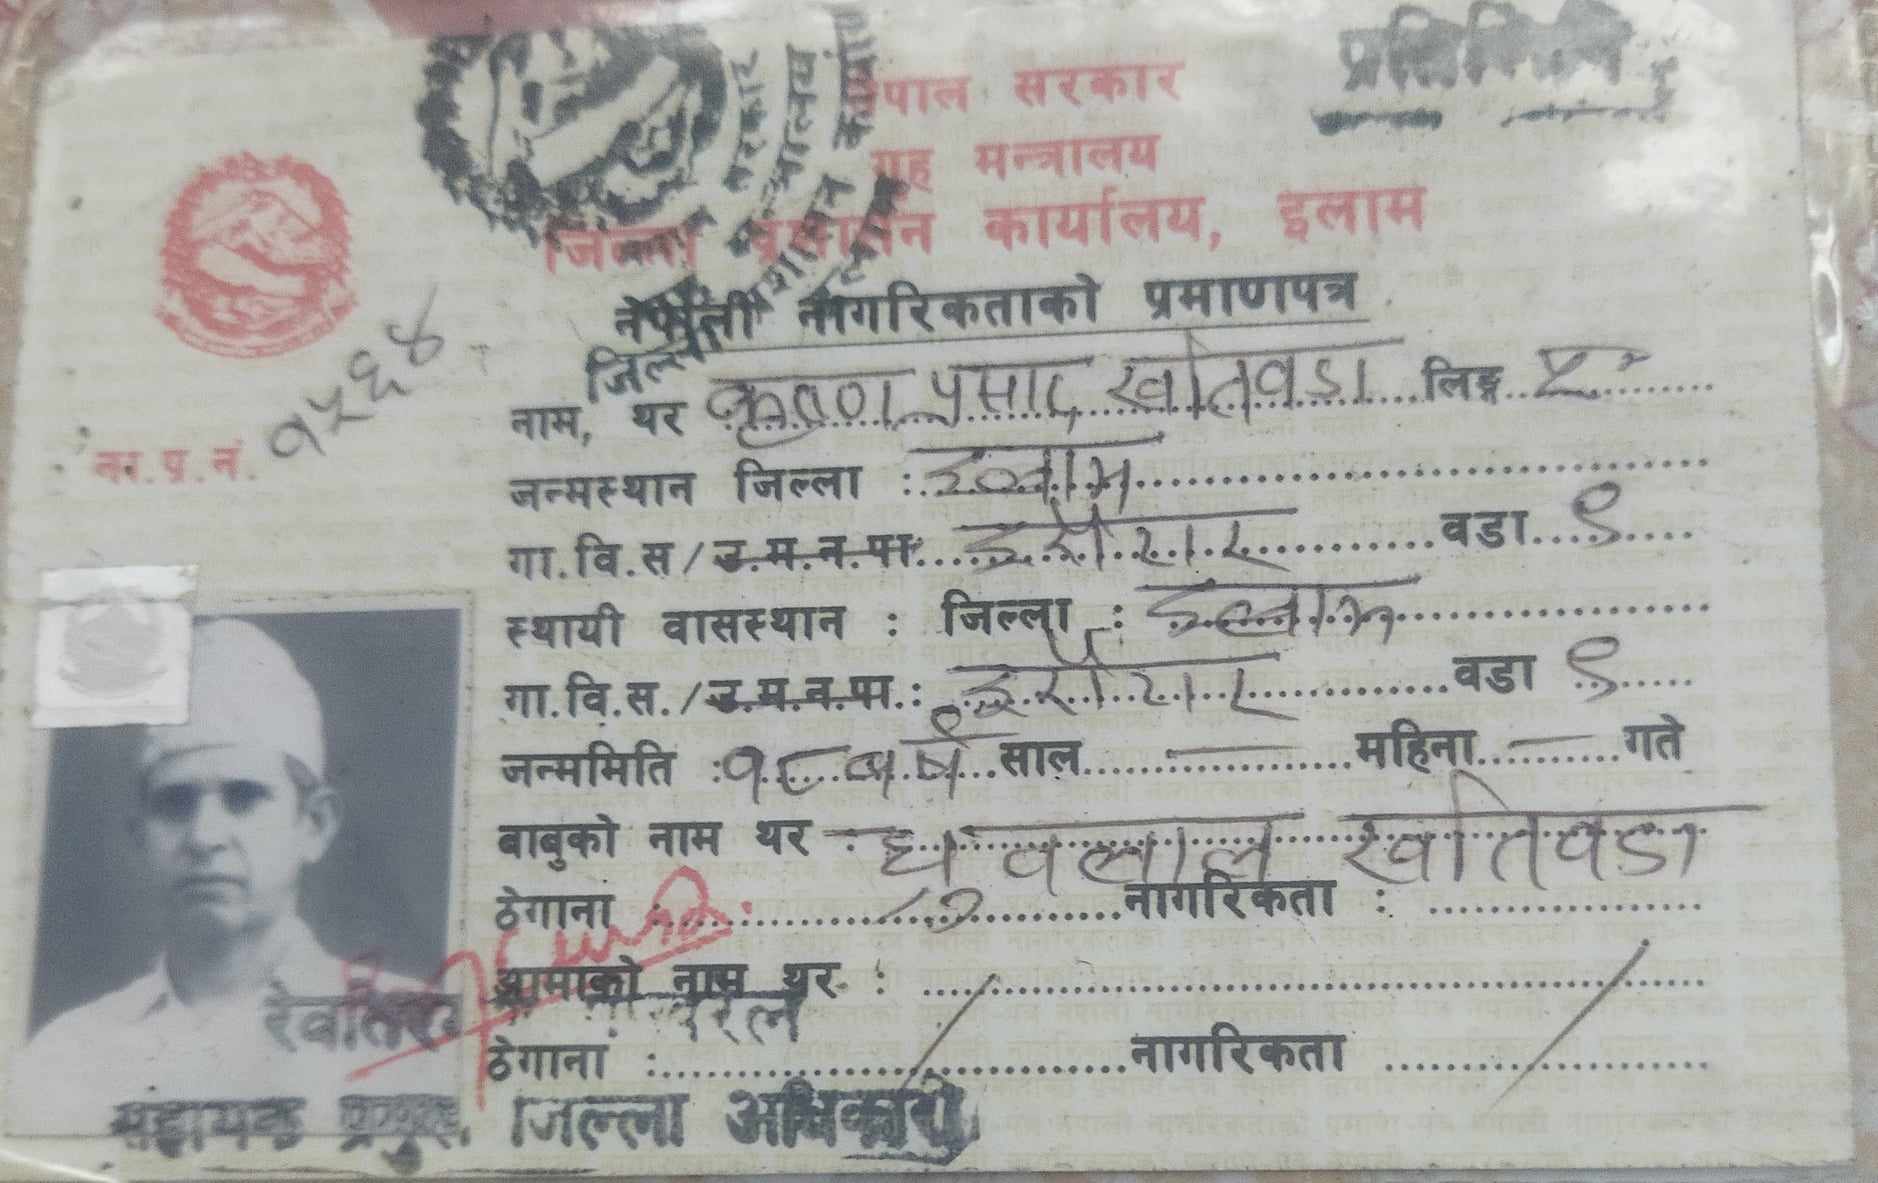 प्रतिलिपि
नेपाल सरकार
गृह मन्त्रालय
जिल्ला प्रशासन कार्यालय, इलाम
नेपाली नागरिकताको प्रमाणपत्र
ना.प्र.नं. १५६४
नाम, थर कृष्ण प्रसाद खतिवडा लिङ्ग
जन्मस्थान जिल्ला : इलाम
गा.वि.स/उ.म.न.पा. वडा ९
स्थायी वासस्थान : जिल्ला : इलाम
गा.वि.स./उ.म.न.पा. : वडा ९
जन्ममिति : १८ वर्ष साल — महिना — गते
बाबुको नाम थर : खतिवडा
ठेगाना : नागरिकता :
आमाको नाम थर :
ठेगाना : नागरिकता
सहायक प्रमुख जिल्ला अधिकारी